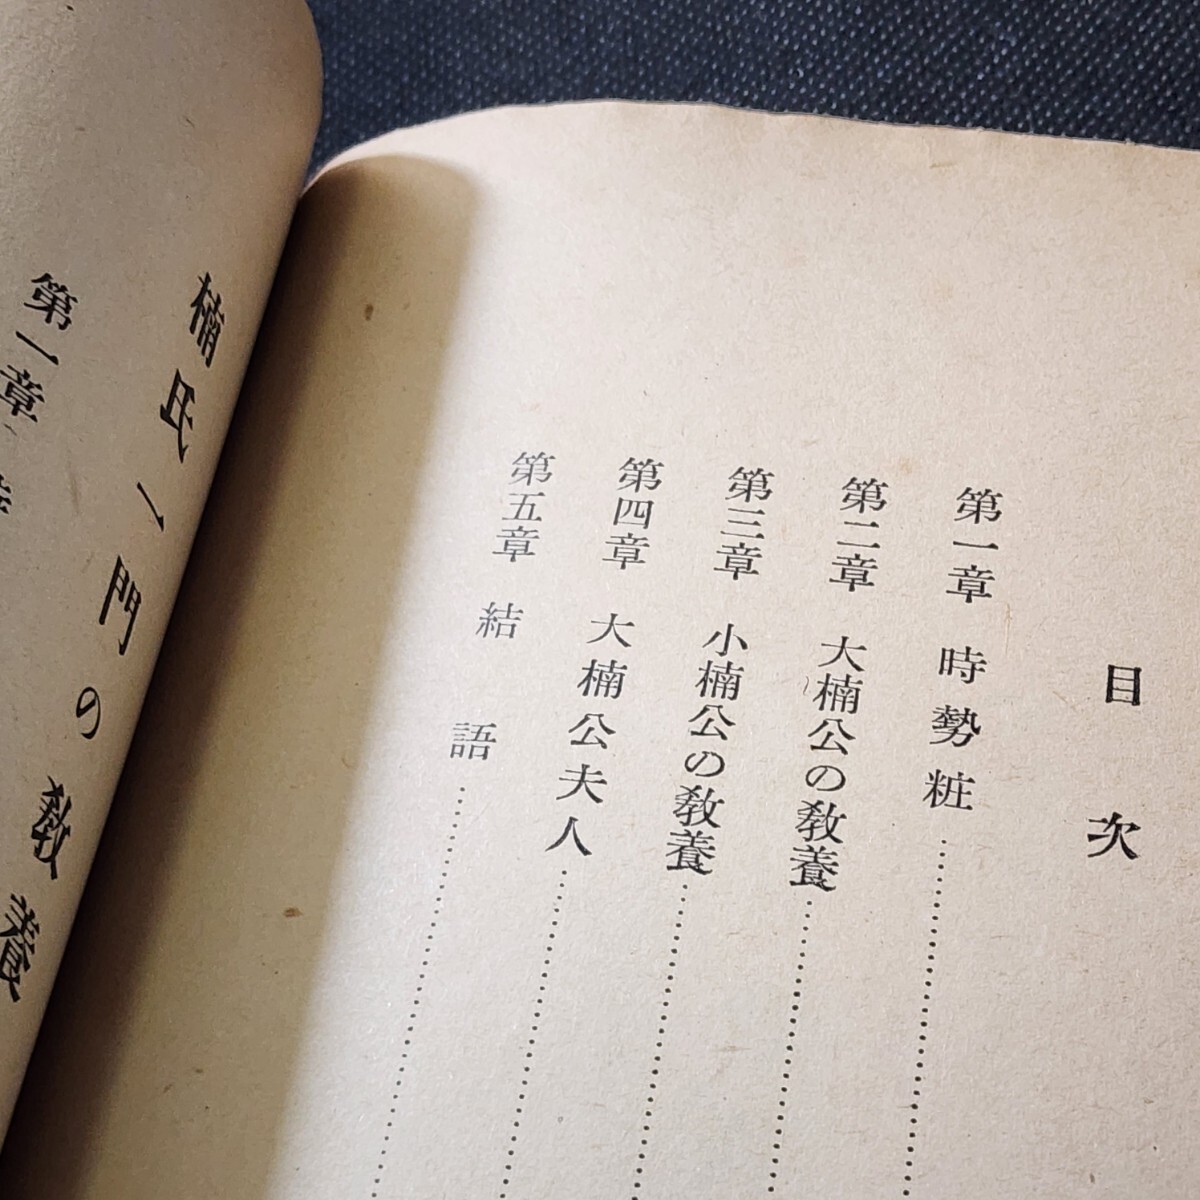 目次
第一章 時勢粧
第二章 大楠公の教養
第三章 小楠公の教養
第四章 大楠公夫人
第五章 結語
楠氏一門の教養
第一章